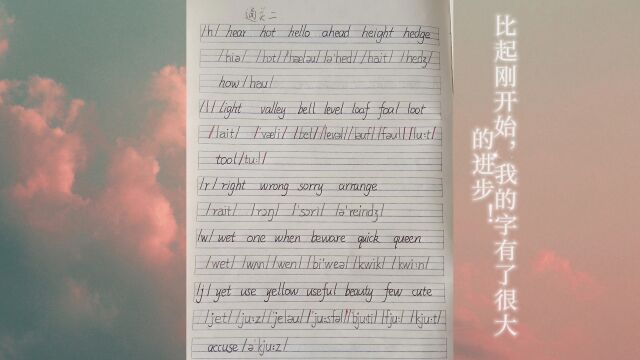 通关二
/h/ hear hot hello ahead height hedge
/hiə/ /hɒt/ /hæləu/ /ə'hed/ /hait/ /hedʒ/
how /hau/
/l/ light valley bell level loaf foal loot
/lait/ /'væli/ /bel/ /levəl/ /ləuf/ /fəul/ /lu:t/
tool /tu:l/
/r/ right wrong sorry arrange
/rait/ /rɒŋ/ /'sɒri/ /ə'reindʒ/
/w/ wet one when beware quick queen
/wet/ /wʌn/ /wen/ /bi'weə/ /kwik/ /kwi:n/
/j/ yet use yellow useful beauty few cute
/jet/ /ju:z/ /jeləu/ /'ju:sfəl/ /bju:ti/ /fju:/ /kju:t/
accuse /ə'kju:z/
比起刚开始，我的字有了很大
的进步！